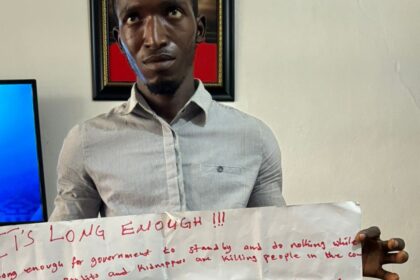 IT'S LONG ENOUGH !!!
ong enough for government to stand by and do nothing while
bandits and kidnappers are killing people in the cou